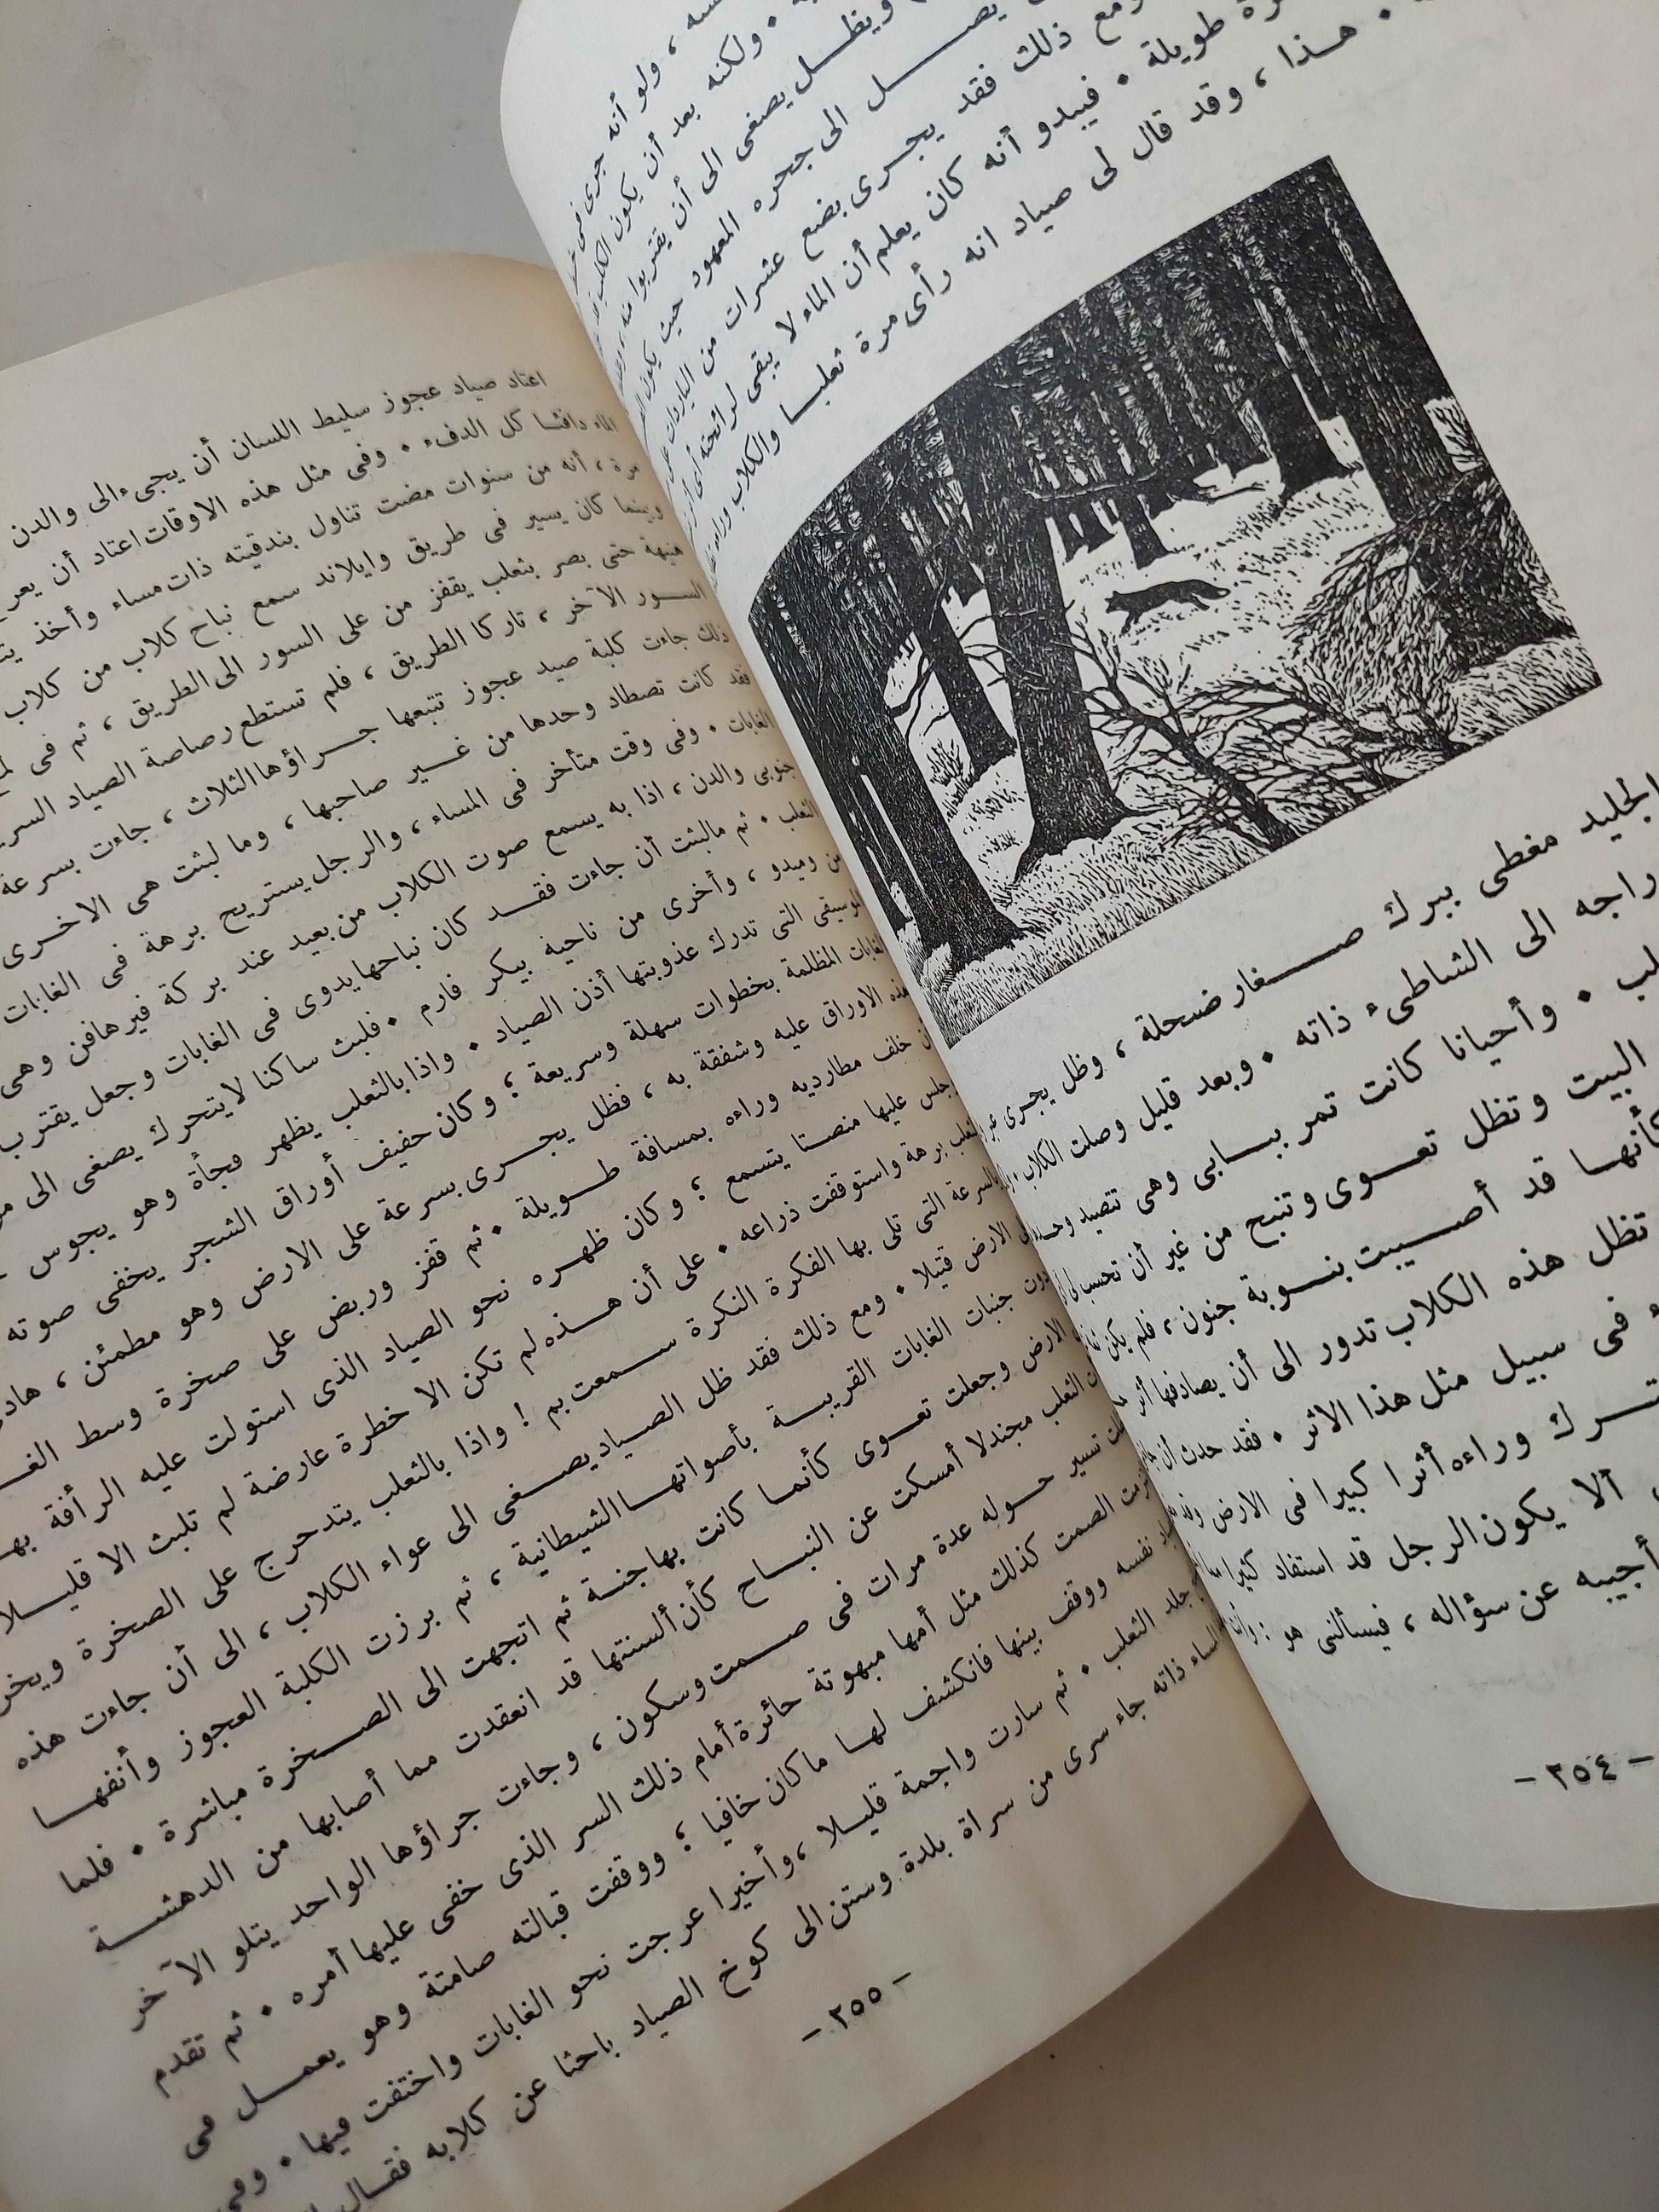 ولو أنه جرى فى
ولكنه بعد أن يكون الكلب
ويظل يصغى الى أن يقتربوا منه
يصل الى جحره المعهود حيث يكون
ومع ذلك فقد يجرى بضع عشرات من الياردات على
طويلة . فيبدو أنه كان يعلم أن الماء لا يبقى لرائحته أى أثر
هذا ، وقد قال لى صياد انه رأى مرة ثعلبا والكلاب وراءه
الجليد مغطى ببرك صغار ضحلة ، وظل يجرى
راجه الى الشاطىء ذاته . وبعد قليل وصلت الكلاب
وأحيانا كانت تمر ببابى وهى تتصيد وحدها
البيت وتظل تعوى وتنبح من غير أن تحسب لى
كأنها قد أصيبت بنوبة جنون ، فلم يكن
تظل هذه الكلاب تدور الى أن يصادفها أثر
فى سبيل مثل هذا الاثر . فقد حدث أن
ترك وراءه أثرا كبيرا فى الارض وقد
ألا يكون الرجل قد استفاد كثيرا مما
أجيبه عن سؤاله ، فيسألنى هو :
— ٣٥٤ —
اعتاد صياد عجوز سليط اللسان أن يجىء الى والدن
الماء دافئا كل الدفء . وفى مثل هذه الاوقات اعتاد أن
مرة ، أنه من سنوات مضت تناول بندقيته ذات مساء وأخذ
وبينما كان يسير فى طريق وايلاند سمع نباح كلاب من كلاب
هنيهة حتى بصر بثعلب يقفز من على السور الى الطريق ، ثم فى
السور الآخر ، تاركا الطريق ، فلم تستطع رصاصة الصياد
ذلك جاءت كلبة صيد عجوز تتبعها جراؤها الثلاث ، جاءت بسرعة
فقد كانت تصطاد وحدها من غير صاحبها ، وما لبثت هى الاخرى
الغابات . وفى وقت متأخر فى المساء ، والرجل يستريح برهة فى الغابات
جنوبى والدن ، اذا به يسمع صوت الكلاب من بعيد عند بركة فيرهافن وهى
الثعلب . ثم مالبثت أن جاءت فقد كان نباحها يدوى فى الغابات وجعل يقترب
من وميدو ، وأخرى من ناحية بيكر فارم . فلبث ساكنا لا يتحرك يصغى الى
الموسيقى التى تدرك عذوبتها أذن الصياد . واذا بالثعلب يظهر فجأة وهو يجوس
الغابات المظلمة بخطوات سهلة وسريعة ؛ وكان حفيف أوراق الشجر يخفى صوته
هذه الاوراق عليه وشفقة به ، فظل يجرى بسرعة على الارض وهو مطمئن ،
خلف مطارديه وراءه بمسافة طويلة . ثم قفز وربض على صخرة وسط
وجلس عليها منصتا يتسمع ؛ وكان ظهره نحو الصياد الذى استولت عليه الرأفة
الثعلب برهة واستوقفت ذراعه . على أن هذه لم تكن الا خطرة عارضة لم تلبث الا قليلا
السرعة التى تلى بها الفكرة الفكرة سمعت بم ! واذا بالثعلب يتدحرج على الصخرة
الى الارض قتيلا . ومع ذلك فقد ظل الصياد يصغى الى عواء الكلاب ، الى أن جاءت هذه
ودوت جنبات الغابات القريبة بأصواتها الشيطانية ، ثم برزت الكلبة العجوز وأنفها
الارض وجعلت تعوى كأنما كانت بها جنة ثم اتجهت الى الصخرة مباشرة . فلما
الثعلب مجندلا أمسكت عن النباح كأن ألسنتها قد انعقدت مما أصابها من الدهشة
تسير حوله عدة مرات فى صمت وسكون ، وجاءت جراؤها الواحد يتلو الآخر
الصمت كذلك مثل أمها مبهوتة حائرة أمام ذلك السر الذى خفى عليها أمره . ثم تقدم
نفسه ووقف بينها فانكشف لها ما كان خافيا ؛ ووقفت قبالته صامتة وهو يعمل فى
جلد الثعلب . ثم سارت واجمة قليلا ، وأخيرا عرجت نحو الغابات واختفت فيها . وفى
المساء ذاته جاء سرى من سراة بلدة وستن الى كوخ الصياد باحثا عن كلابه فقال
— ٣٥٥ —